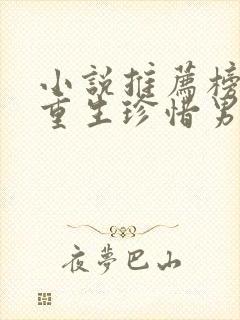 小說推薦榜
重生珍惜男
夜夢巴山